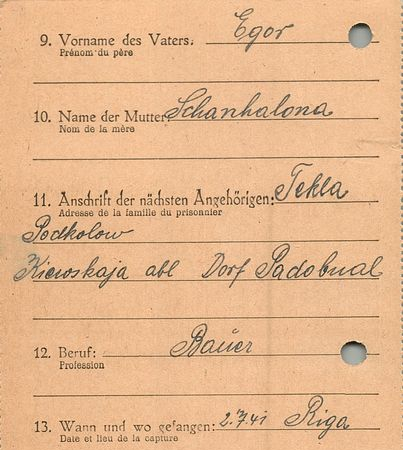 9. Vorname des Vaters: Egor
Prénom du père
10. Name der Mutter: Schanhalona
Nom de la mère
11. Anschrift der nächsten Angehörigen: Tekla
Adresse de la famille du prisonnier
Podkolow
Kiewskaja abl Dorf Padobnal
12. Beruf: Bauer
Profession
13. Wann und wo gefangen: 2.7.41 Riga
Date et lieu de la capture